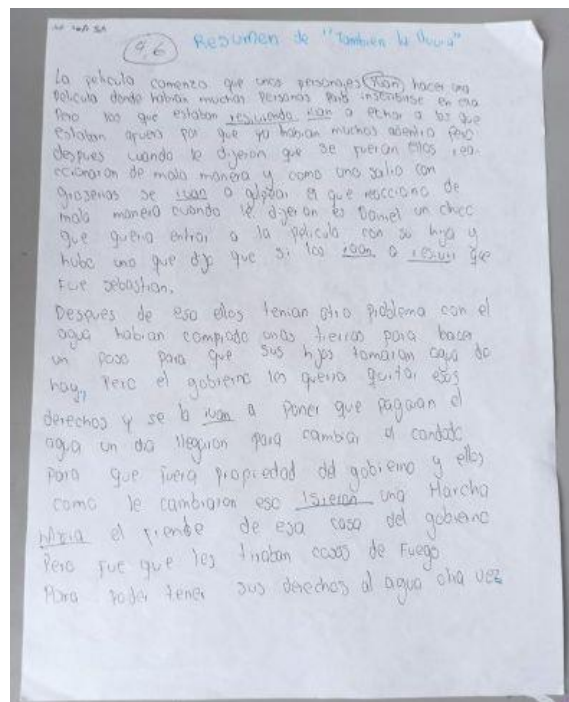 4,6
Resumen de "Tambien la lluvia"
La pelicula comenzo que unos personajes ivan hacer una
pelicula donde habian muchas personas para inscribirse en ella
Pero los que estaban resiviendo ivan a echar a los que
estaban afuera por que ya habian muchos adentro pero
despues cuando le dijeron que se fueran ellos rea-
ccionaron de mala manera y como uno salio con
groserias se ivan a golpiar el que reacciono de
mala manera cuando le dijeron es Daniel un chico
que queria entrar a la pelicula con su hija y
hubo uno que dijo que si los ivan a resivir que
Fue sebastian.
Despues de eso ellos tenian otro problema con el
agua habian comprado unas tierras para hacer
un poso para que sus hijos tomaran agua de
hay, Pero el gobierno les queria quitar esos
derechos y se la ivan a poner que pagaran el
agua un dia llegaron para cambiar el candado
para que fuera propiedad del gobierno y ellos
como le cambiaron eso isieron una Marcha
el frende de esa casa del gobierno
Pero fue que les tiraban cosas de fuego
Para poder tener sus derechos al agua otra vez